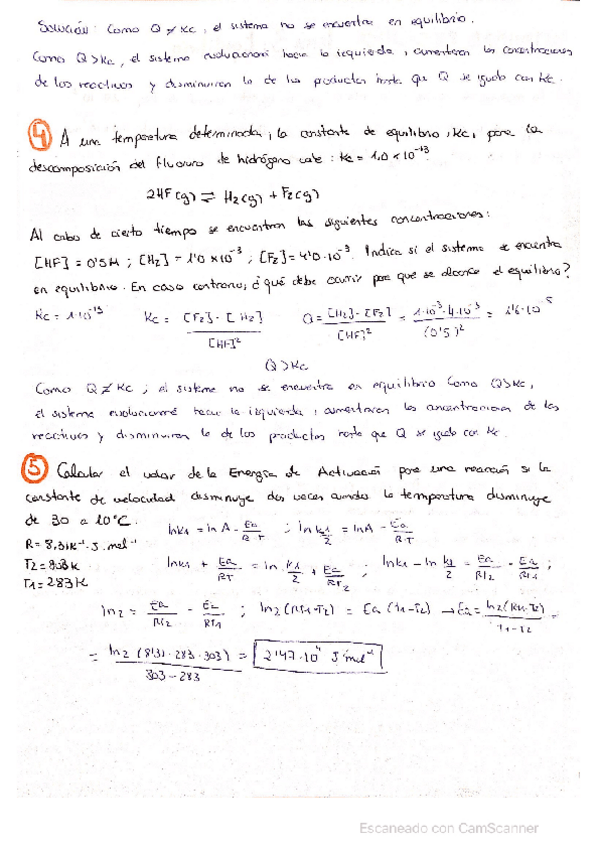 Solución: Como Q ≠ Kc, el sistema no se encuentra en equilibrio.
Como Q > Kc, el sistema evolucionará hacia la izquierda, aumentaran las concentraciones
de los reactivos y disminuiran la de los productos hasta que Q se iguale con Kc.
④ A una temperatura determinada, la constante de equilibrio, Kc, para la
descomposición del fluoruro de hidrógeno vale: Kc = 1,0 × 10⁻¹³
2HF(g) ⇌ H₂(g) + F₂(g)
Al cabo de cierto tiempo se encuentran las siguientes concentraciones:
[HF] = 0'5M ; [H₂] = 1'0 × 10⁻³ ; [F₂] = 4'0·10⁻³. Indica si el sistema se encuentra
en equilibrio. En caso contrario, ¿qué debe ocurrir para que se alcance el equilibrio?
Kc = 1·10⁻¹³ Kc = [F₂]·[H₂] / [HF]² Q = [H₂]·[F₂] / [HF]² = 1·10⁻³·4·10⁻³ / (0'5)² = 1'6·10⁻⁵
Q > Kc
Como Q ≠ Kc, el sistema no se encuentra en equilibrio Como Q > Kc,
el sistema evolucionará hacia la izquierda, aumentaran las concentraciones de los
reactivos y disminuiran la de los productos hasta que Q se iguale con Kc.
⑤ Calcular el valor de la Energía de Activación para una reacción si la
constante de velocidad disminuye dos veces cuando la temperatura disminuye
de 30 a 10°C.
lnK₁ = ln A - Ea / R·T ; ln K₁/2 = lnA - Ea / R·T
R = 8,31K⁻¹·J·mol⁻¹
T₂ = 303K
T₁ = 283K
lnK₁ + Ea / RT = ln K₁/2 + Ea / RT ; lnK₁ - ln K₁/2 = Ea / RT₂ - Ea / RT₁ ;
ln2 = Ea / RT₂ - Ea / RT₁ ; ln2 (RT₁·T₂) = Ea (T₁-T₂) → Ea = ln2(RT₁·T₂) / T₁-T₂ =
= ln2 (8'31·283·303) / 303-283 = 2'147·10⁴ J mol⁻¹
Escaneado con CamScanner